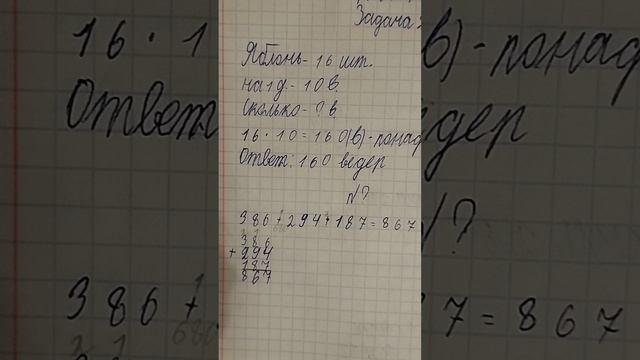 Задача
Яблонь - 16 шт.
на 1 д. - 10 в.
Сколько - ? в.
16 · 10 = 160(в) - понад
Ответ: 160 ведер
№?
386 + 294 + 187 = 867
386
+ 294
187
867